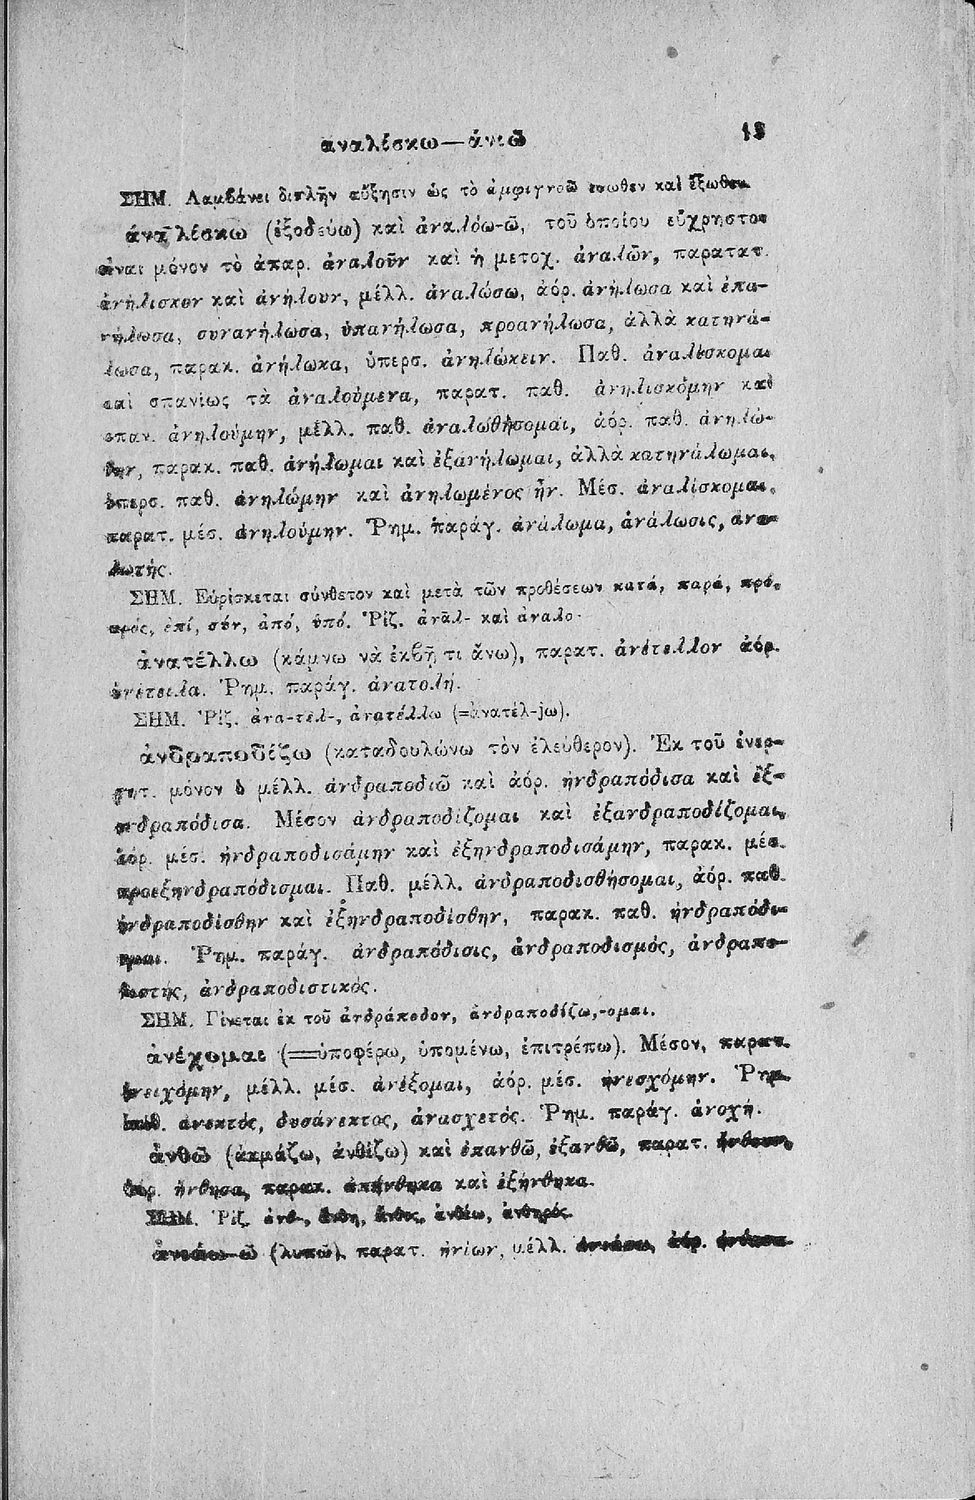 ἀναλίσκω—ἀνιῶ 13
ΣΗΜ. Λαμβάνει διπλῆν αὔξησιν ὡς τὸ ἀμφιγνοῶ ἔσωθεν καὶ ἔξωθεν.
ἀναλίσκω (ἐξοδεύω) καὶ ἀναλόω-ῶ, τοῦ ὁποίου εὔχρηστον
εἶναι μόνον τὸ ἀπαρ. ἀναλοῦν καὶ ἡ μετοχ. ἀναλῶν, παρατατ.
ἀνήλισκον καὶ ἀνήλουν, μέλλ. ἀναλώσω, ἀόρ. ἀνήλωσα καὶ ἐπα-
νήλωσα, συνανήλωσα, ὑπανήλωσα, προανήλωσα, ἀλλὰ κατηνά-
λωσα, παρακ. ἀνήλωκα, ὑπερσ. ἀνηλώκειν. Παθ. ἀναλίσκομαι
καὶ σπανίως τὰ ἀναλούμενα, παρατ. παθ. ἀνηλισκόμην καὶ
σπαν. ἀνηλούμην, μέλλ. παθ. ἀναλωθήσομαι, ἀόρ. παθ. ἀνηλώ-
θην, παρακ. παθ. ἀνήλωμαι καὶ ἐξανήλωμαι, ἀλλὰ κατηνάλωμαι,
ὑπερσ. παθ. ἀνηλώμην καὶ ἀνηλωμένος ἦν. Μέσ. ἀναλίσκομαι,
παρατ. μέσ. ἀνηλούμην. Ῥημ. παράγ. ἀνάλωμα, ἀνάλωσις, ἀνα-
λωτής.
ΣΗΜ. Εὑρίσκεται σύνθετον καὶ μετὰ τῶν προθέσεων κατά, παρά, πρό,
πρός, ἐπί, σύν, ἀπό, ὑπό. Ῥίζ. ἀνᾱλ- καὶ ἀναλο-
ἀνατέλλω (κάμνω νὰ ἐκβῇ τι ἄνω), παρατ. ἀνέτελλον ἀόρ.
ἀνέτειλα. Ῥημ. παράγ. ἀνατολή.
ΣΗΜ. Ῥίζ. ἀνα-τελ-, ἀνατέλλω (=ἀνατέλ-jω).
ἀνδραποδίζω (καταδουλώνω τὸν ἐλεύθερον). Ἐκ τοῦ ἐνερ-
γητ. μόνον ὁ μέλλ. ἀνδραποδιῶ καὶ ἀόρ. ἠνδραπόδισα καὶ ἐξ-
ηνδραπόδισα. Μέσον ἀνδραποδίζομαι καὶ ἐξανδραποδίζομαι,
ἀόρ. μέσ. ἠνδραποδισάμην καὶ ἐξηνδραποδισάμην, παρακ. μέσ.
προεξηνδραπόδισμαι. Παθ. μέλλ. ἀνδραποδισθήσομαι, ἀόρ. παθ.
ἠνδραποδίσθην καὶ ἐξηνδραποδίσθην, παρακ. παθ. ἠνδραπόδι-
σμαι. Ῥημ. παράγ. ἀνδραπόδισις, ἀνδραποδισμός, ἀνδραπο-
διστής, ἀνδραποδιστικός.
ΣΗΜ. Γίνεται ἐκ τοῦ ἀνδράποδον, ἀνδραποδίζω,-ομαι.
ἀνέχομαι (=ὑποφέρω, ὑπομένω, ἐπιτρέπω). Μέσον, παρατ.
ἠνειχόμην, μέλλ. μέσ. ἀνέξομαι, ἀόρ. μέσ. ἠνεσχόμην. Ῥημ.
ἐπίθ. ἀνεκτός, δυσάνεκτος, ἀνασχετός. Ῥημ. παράγ. ἀνοχή.
ἀνθῶ (ἀκμάζω, ἀνθίζω) καὶ ἐπανθῶ, ἐξανθῶ, παρατ. ἤνθουν,
ἀόρ. ἤνθησα, παρακ. ἀπήνθηκα καὶ ἐξήνθηκα.
ΣΗΜ. Ῥίζ. ἀνθ-, ἄνθη, ἄνθος, ἀνθέω, ἀνθηρός.
ἀνιάω-ῶ (λυπῶ), παρατ. ἠνίων, μέλλ. ἀνιάσω, ἀόρ. ἠνίασα